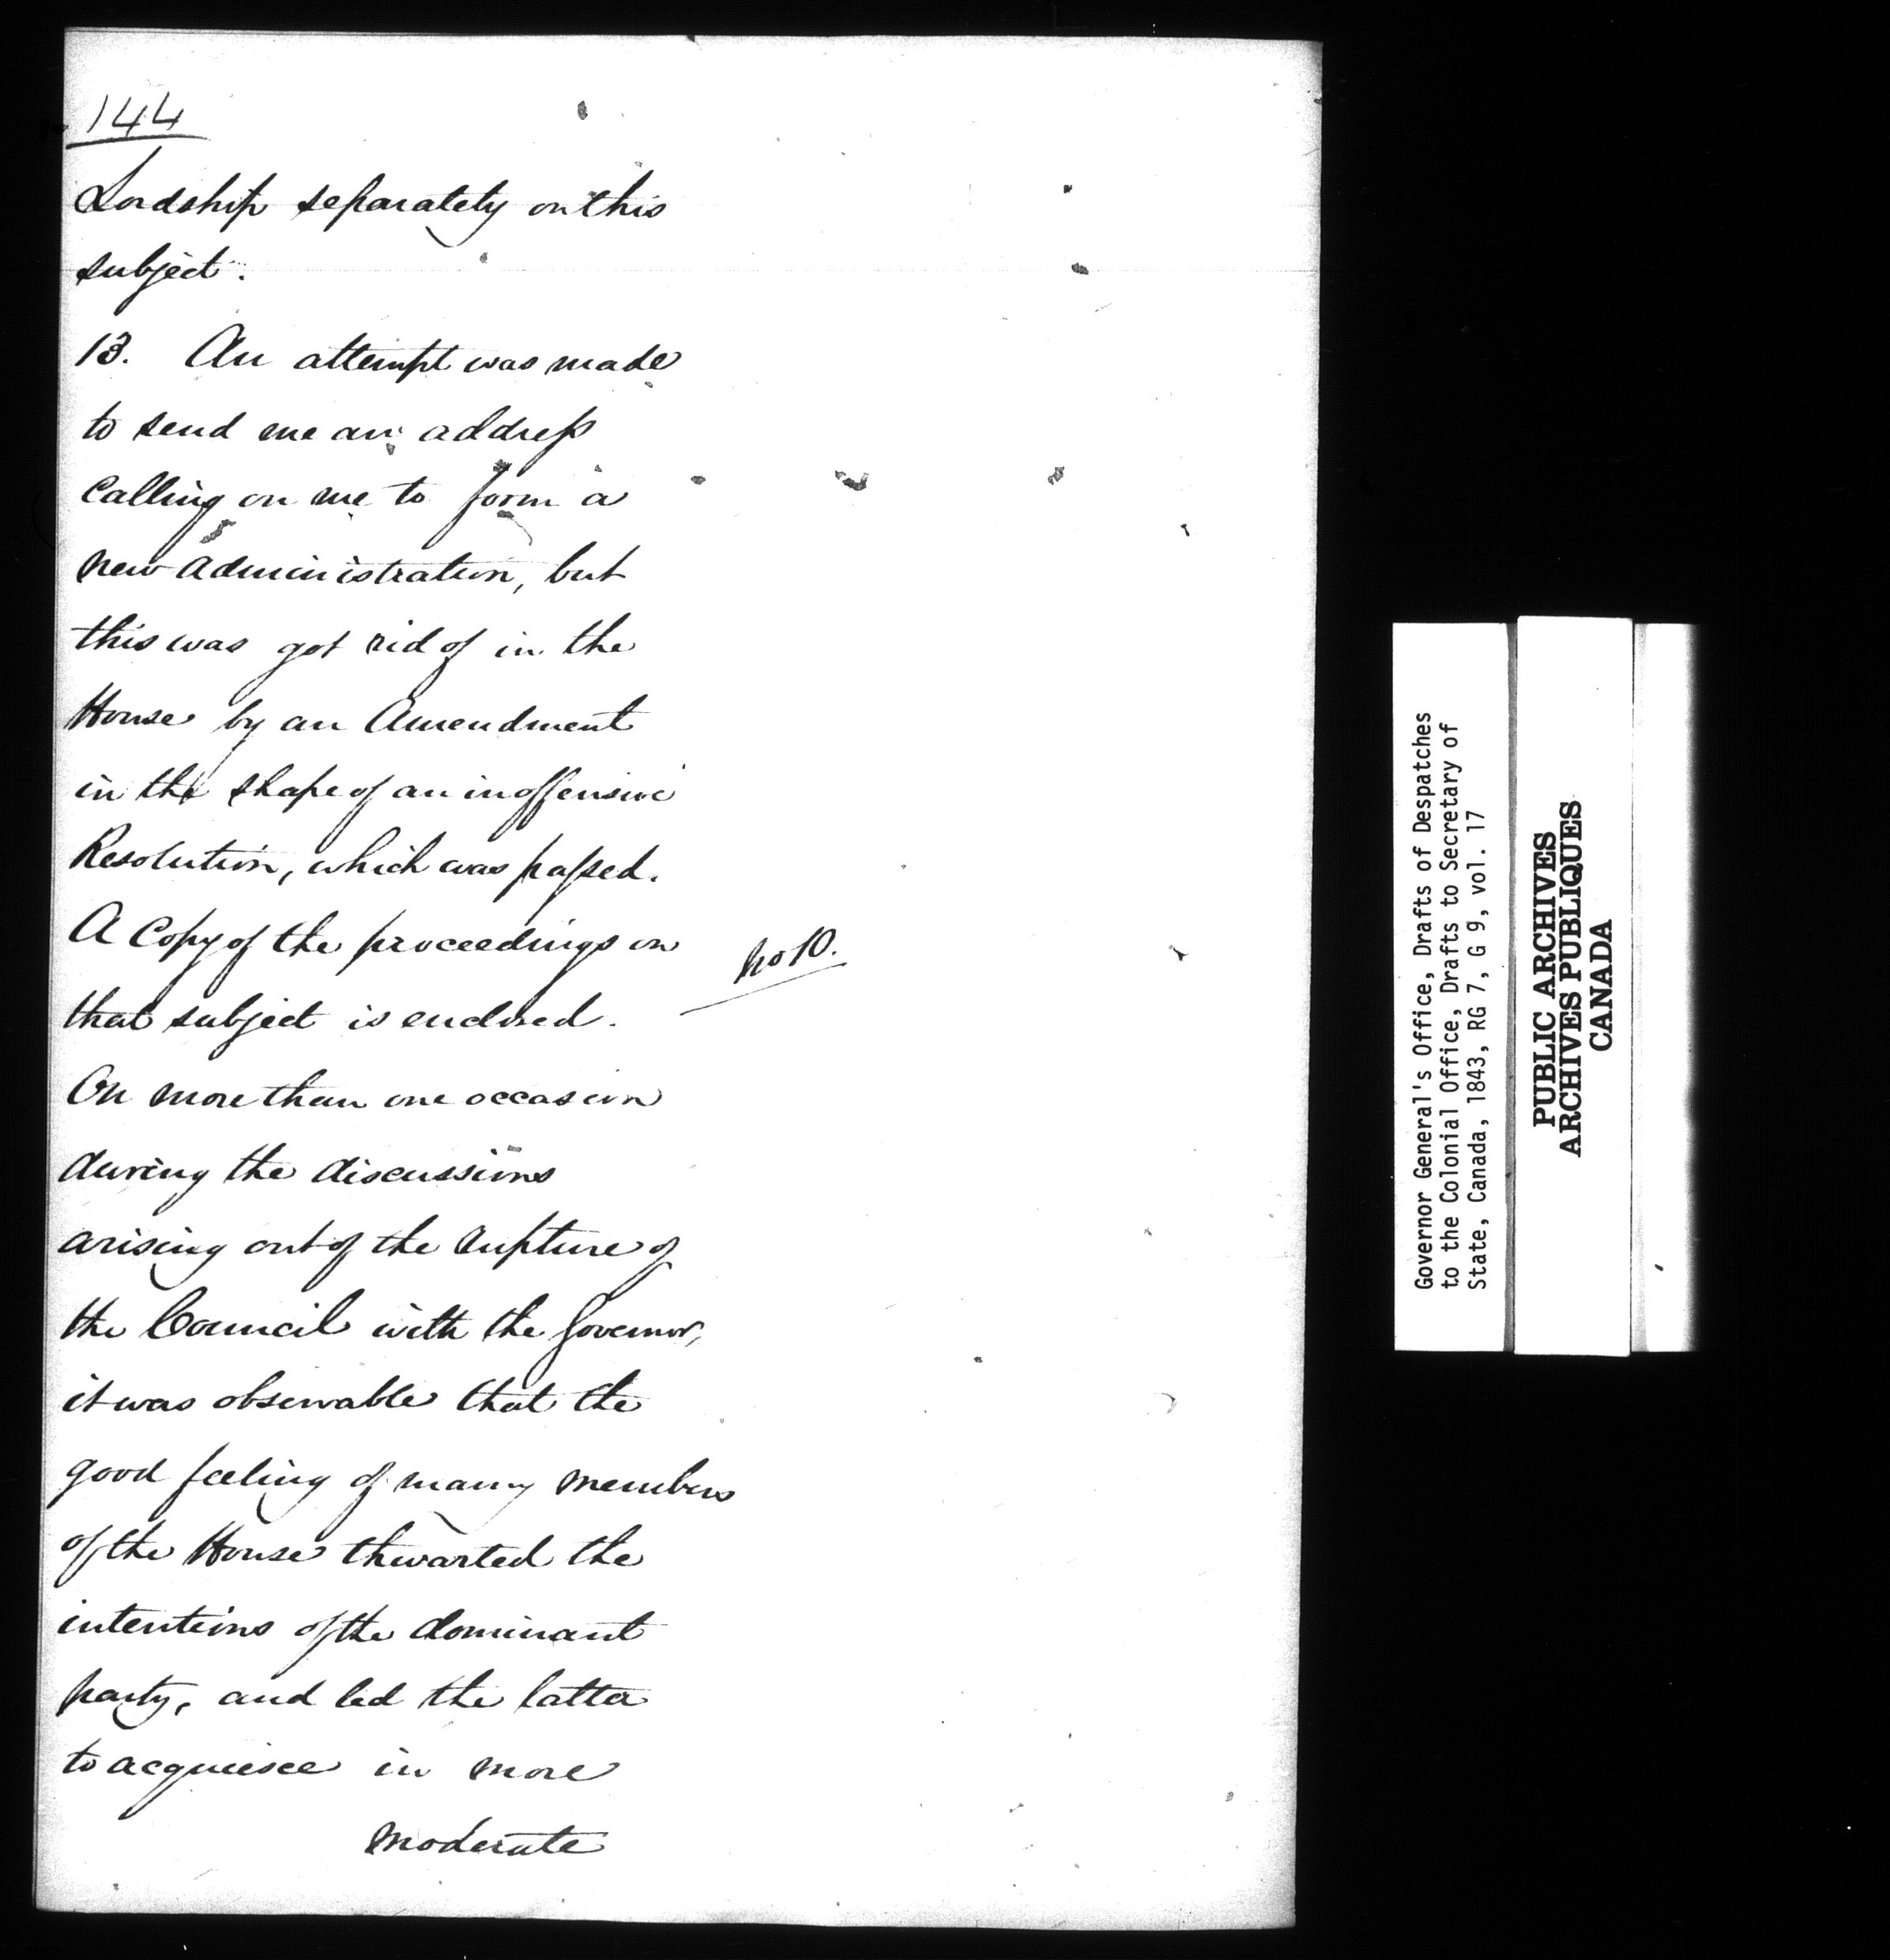 144
Lordship separately on this
subject.
13. An attempt was made
to send me an address
calling on me to form a
new administration, but
this was got rid of in the
House by an Amendment
in the shape of an inoffensive
Resolution, which was passed.
A Copy of the proceedings on
that subject is enclosed.
No 10.
On more than one occasion
during the discussions
arising out of the rupture of
the Council with the Governor,
it was observable that the
good feeling of many members
of the House thwarted the
intentions of the dominant
party, and led the latter
to acquiesce in more
moderate
Governor General's Office, Drafts of Despatches
to the Colonial Office, Drafts to Secretary of
State, Canada, 1843, RG 7, G 9, vol. 17
PUBLIC ARCHIVES
ARCHIVES PUBLIQUES
CANADA